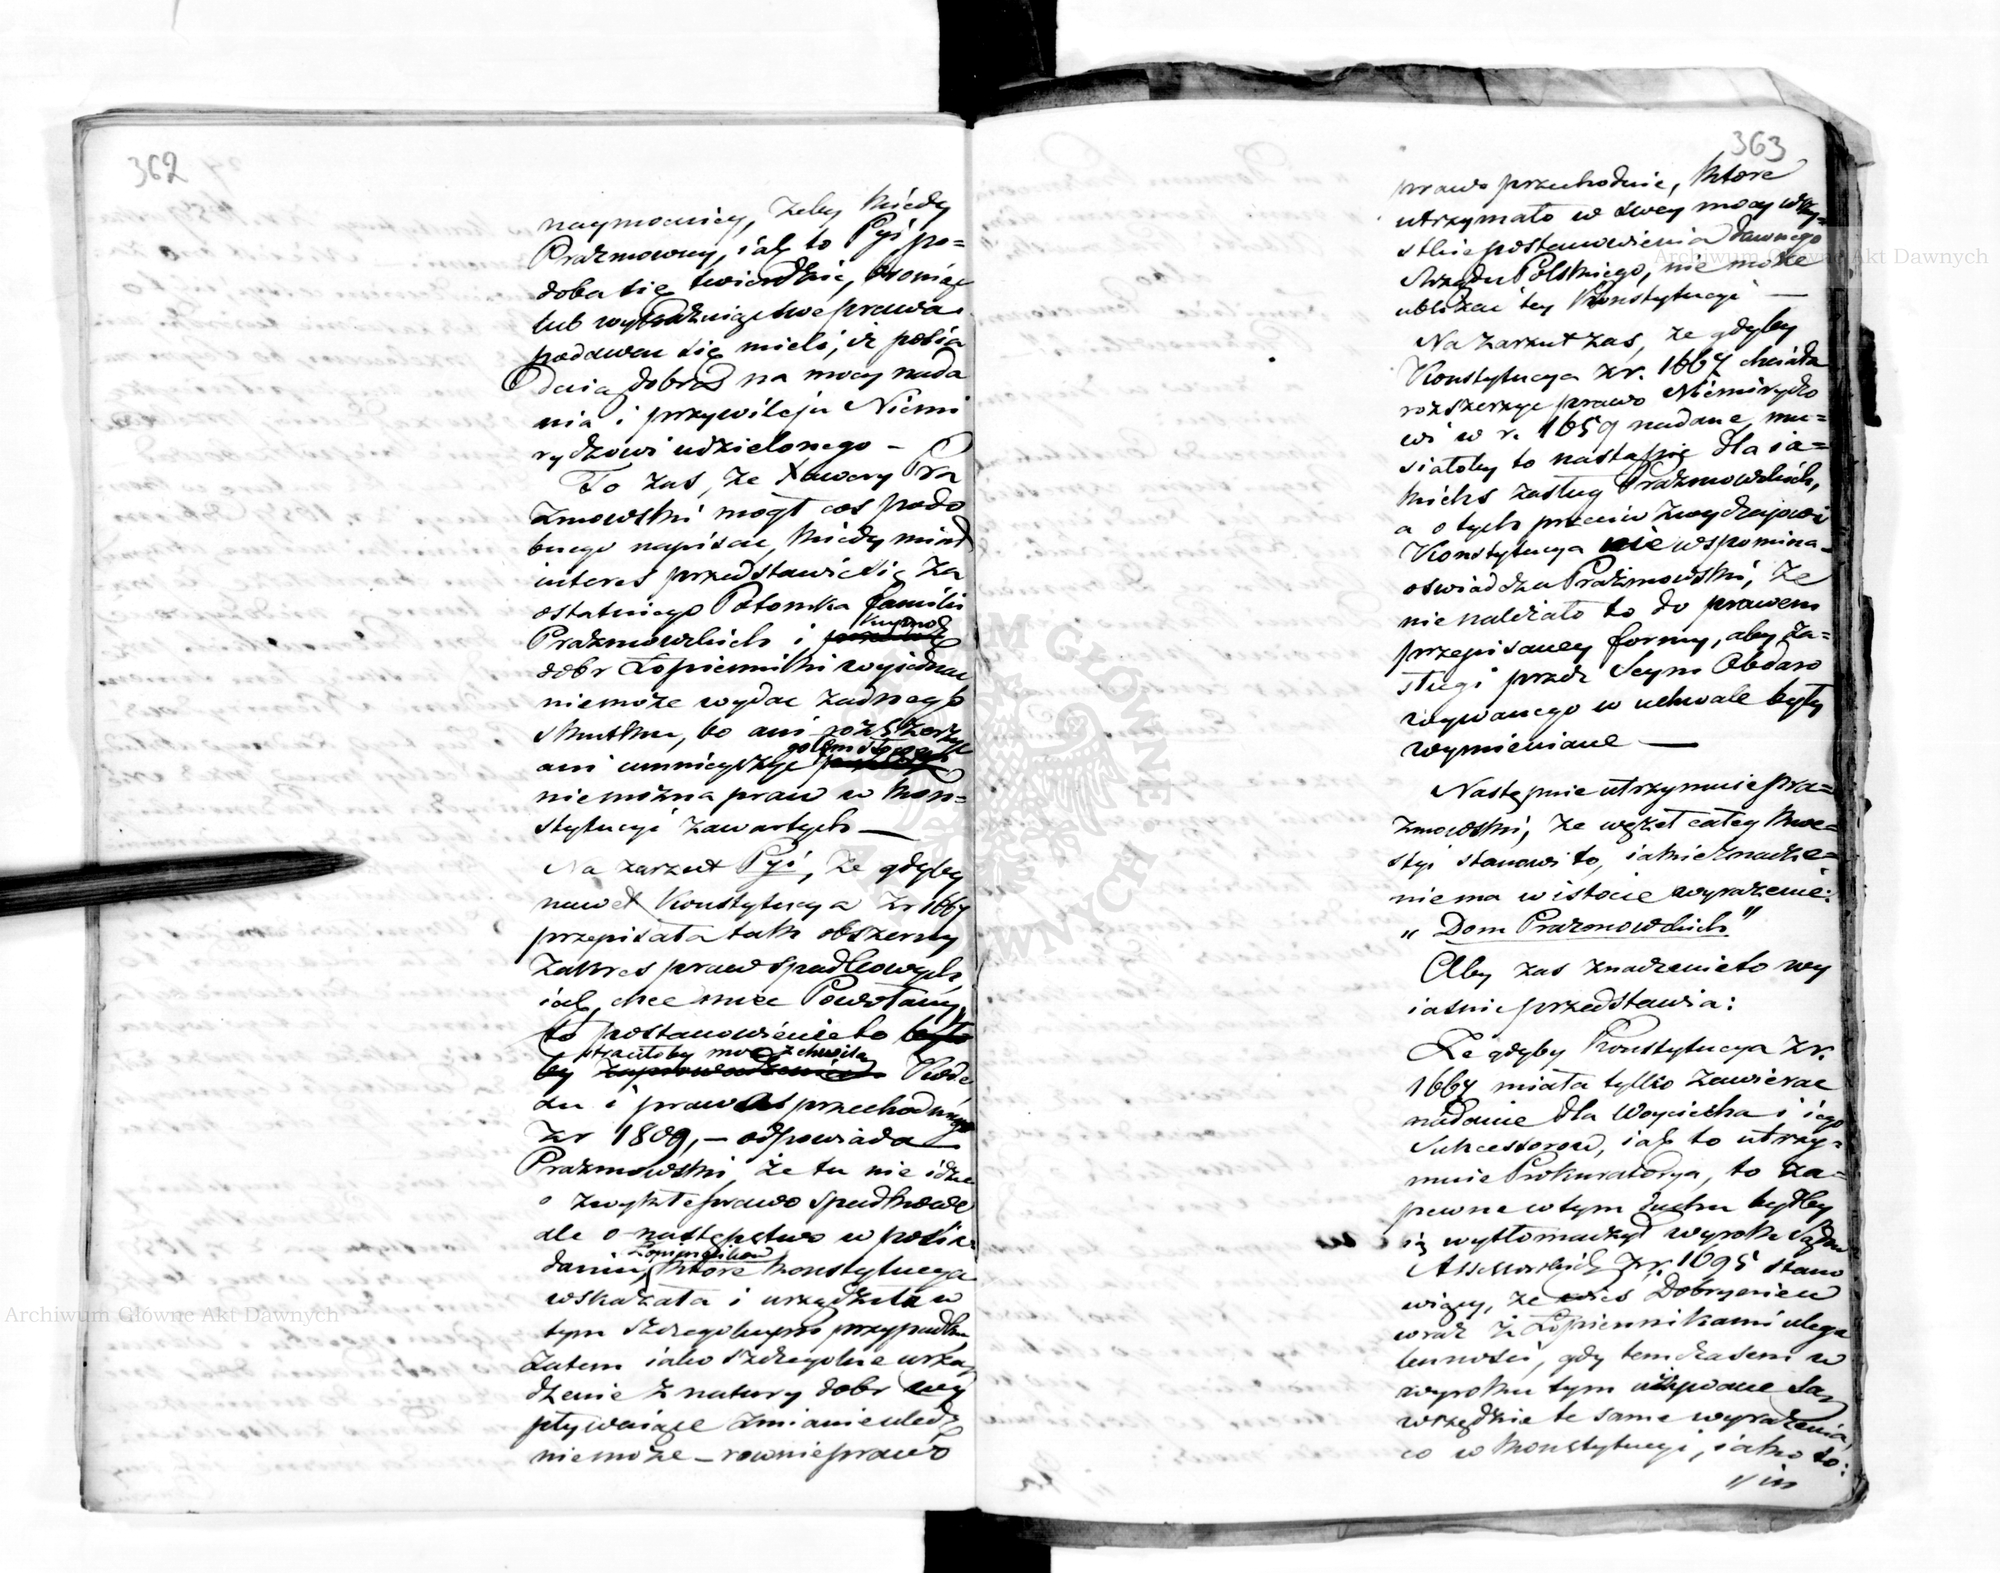 362
naymocniey, żeby kiedy
Prażmowscy, iak to Pgi po=
doba się twierdzić, broniąc
lub wyłuszczaiąc swe prawa
podawać się mieli, iż posia
daią dobra na mocy nada
nia i przywileju Niemi
rydzowi udzielonego –
To zas, że Xawery Pra
żmowski mogł cos podo
bnego napisać, kiedy miał
interes przedstawić się za
ostatniego Potomka familii
Prażmowskich i
dobr Łopienniki wyiednać
niemoże wydać żadnego
skutku, bo ani rozszerzyć
ani umnieyszyć
niemożna praw w Kon=
stytucyi zawartych —
Na zarzut Pgi, że gdyby
nawet Konstytucya z r 1667
przepisała tak obszerny
zakres praw spadkowych,
iak chce mieć Powołany,
to postanowienie to było
by utraciłoby moc z chwilą Kode
xu i prawa przechodniego
z r 1809, – odpowiada
Prażmowski, że tu nie idzie
o zwykłe prawo spadkowe
ale o następstwo w posia
daniu Łopiennikow, które Konstytucya
wskazała i urządziła w
tym szczegolnym przypadku
zatem iako szczegolne urzą
dzenie z natury dobr wy
pływaiące zmianie uledz
niemoże – rownie prawo
363
prawo przechodnie, ktore
utrzymało w swey mocy wszy=
stkie postanowienia dawnego
Rządu Polskiego, nie może
ubliżać tey Konstytucyi —
Na zarzut zas, że gdyby
Konstytucya z r. 1667 chciała
rozszerzyć prawo Niemirydzo
wi w r. 1659 nadane, mu=
siałoby to nastąpić dla ia=
kichs zasług Prażmowskich,
a o tych przeciw zwyczajowi
Konstytucya nie wspomina=
oswiadcza Prażmowski, że
nie należało to do prawem
przepisaney formy, aby za=
sługi przez Seym Obdaro
wywanego w uchwale były
wymieniane —
Następnie utrzymuie Pra=
żmowski, że węzeł całey kwe=
styi stanowi to, iakie znacze=
nie ma w istocie wyrażenie:
„ Dom Prażmowskich"
Aby zas znaczenie to wy
iasnić przedstawia:
Że gdyby Konstytucya z r.
1667 miała tylko zawierać
nadanie dla Woyciecha i iego
Sukcessorow, iak to utrzy=
muie Prokuratorya, to za=
pewne w tym duchu byłby
ią wytłomaczył wyrok Sądow
Assessorskich z r. 1695 stano
wiący, że wies Dobryniew
wraz z Łopiennikami ulega
lenności, gdy tem czasem w
wyroku tym używane są
wszędzie te same wyrażenia,
co w Konstytucyi, iako to:
„ in
Archiwum Główne Akt Dawnych
Archiwum Główne Akt Dawnych